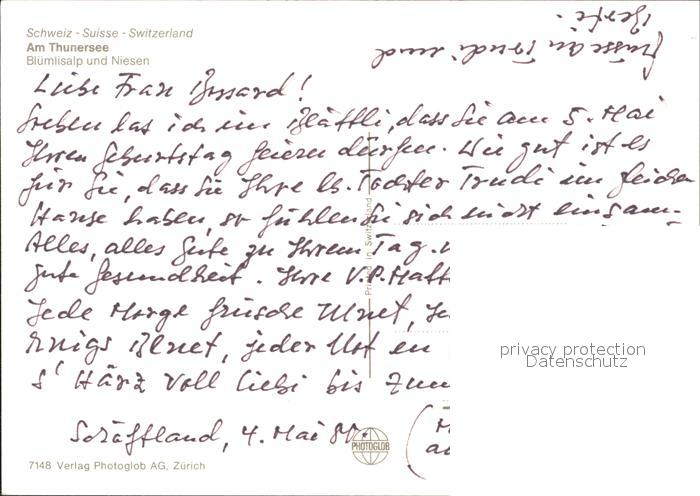 Schweiz - Suisse - Switzerland
Am Thunersee
Blümlisalp und Niesen
Grüsse an Trudi und
Liebe Frau Bossard!
Soeben las ich im Blättli, dass Sie am 5. Mai
Ihren Geburtstag feiern dürfen. Wie gut ist es
für Sie, dass Sie Ihre lb. Tochter Trudi im gleichen
Hause haben, so fühlen Sie sich nicht einsam.
Alles, alles Gute zu Ihrem Tag
gute Gesundheit. Ihre V.P.
Jede Morge früsche Muet,
Bluet, jeder
s'Härz voll Liebi bis zum
Schöftland, 4. Mai 80.
Printed in Switzerland
PHOTOGLOB
7148 Verlag Photoglob AG, Zürich
privacy protection
Datenschutz